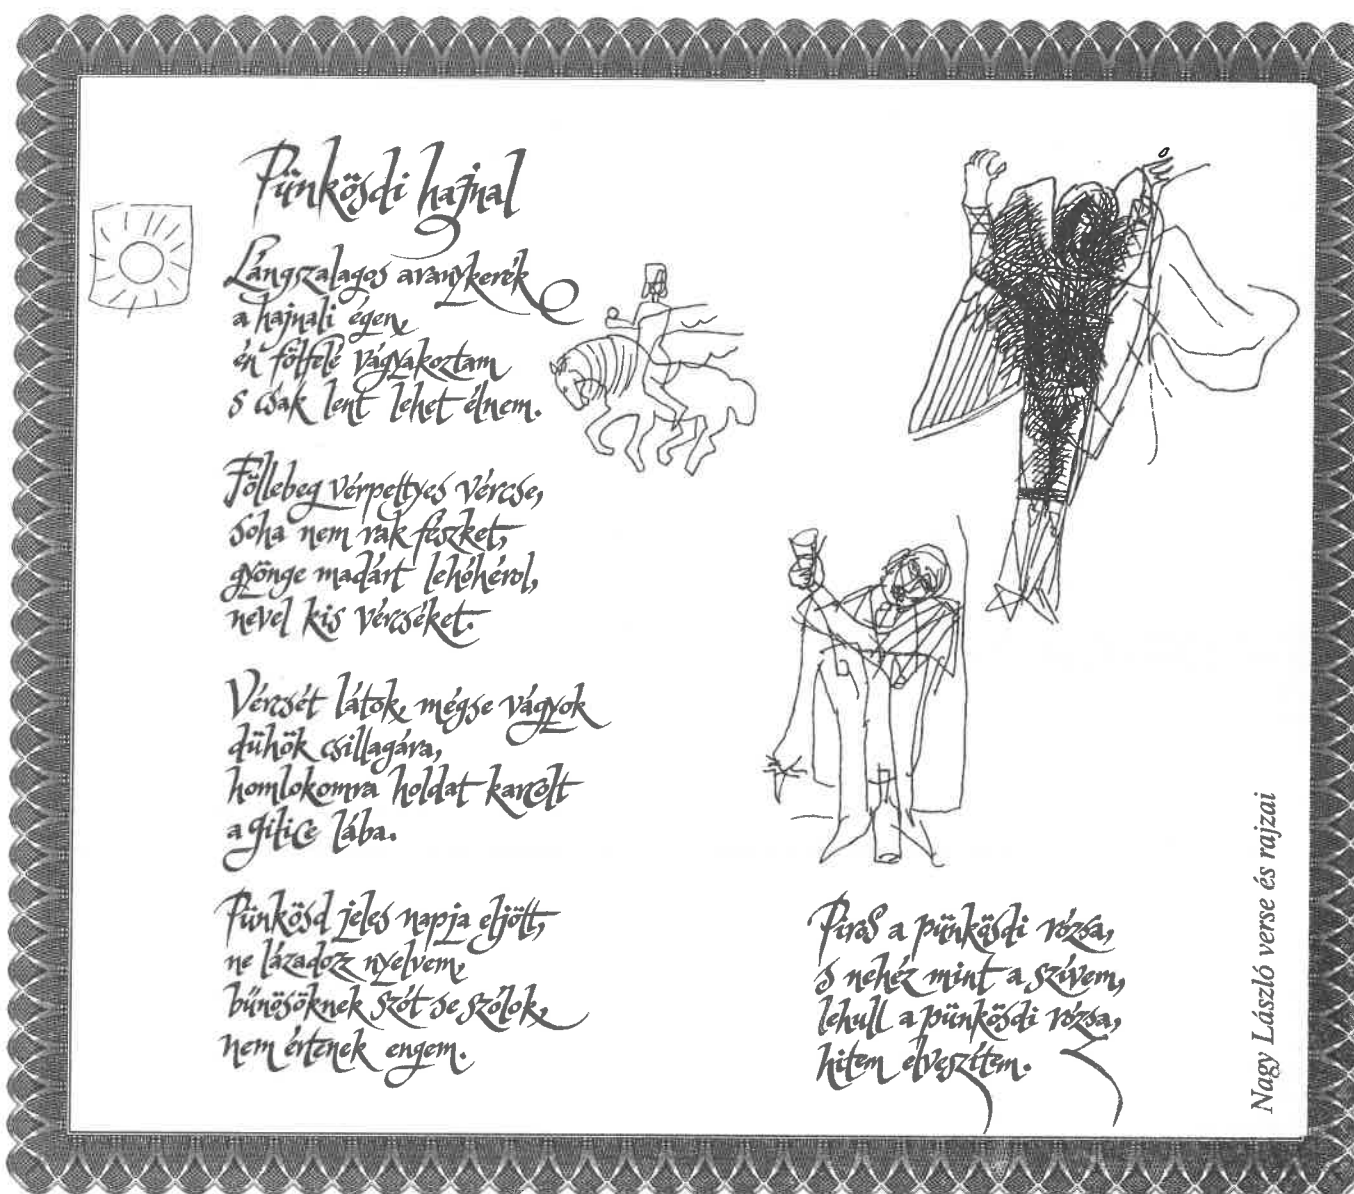 Pünkösdi hajnal
Lángszalagos aranykerék
a hajnali égen,
én fölfelé vágyakoztam
s csak lent lehet élnem.
Föllebeg vérpettyes vércse,
soha nem rak fészket,
gyönge madárt lehóhérol,
nevel kis vércséket.
Vércsét látok, mégse vágyok
dühök csillagára,
homlokomra holdat karcolt
a gilice lába.
Pünkösd jeles napja eljött,
ne lázadozz nyelvem,
bűnösöknek szót se szólok,
nem értenek engem.
Piros a pünkösdi rózsa,
s nehéz mint a szívem,
lehull a pünkösdi rózsa,
hitem elveszítem.
Nagy László verse és rajzai